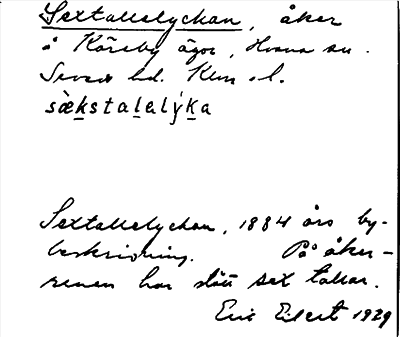 Sextallelyckan, åker
å Käreby ägor, Hossmo sn.
Sevede hd. Klm. l.
sæ̀kstalalýka
Sextallelyckan, 1884 års by-
beskrivning. På åker-
renen har stått sex tallar.
Eric Eilert 1929